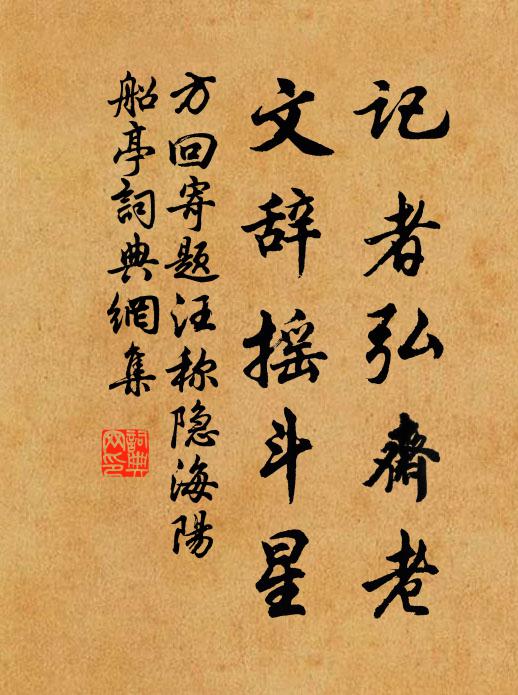 记者弘斋老
文辞摇斗星
方回寄题汪称隐海陽
船亭詞典網集
詞典網印